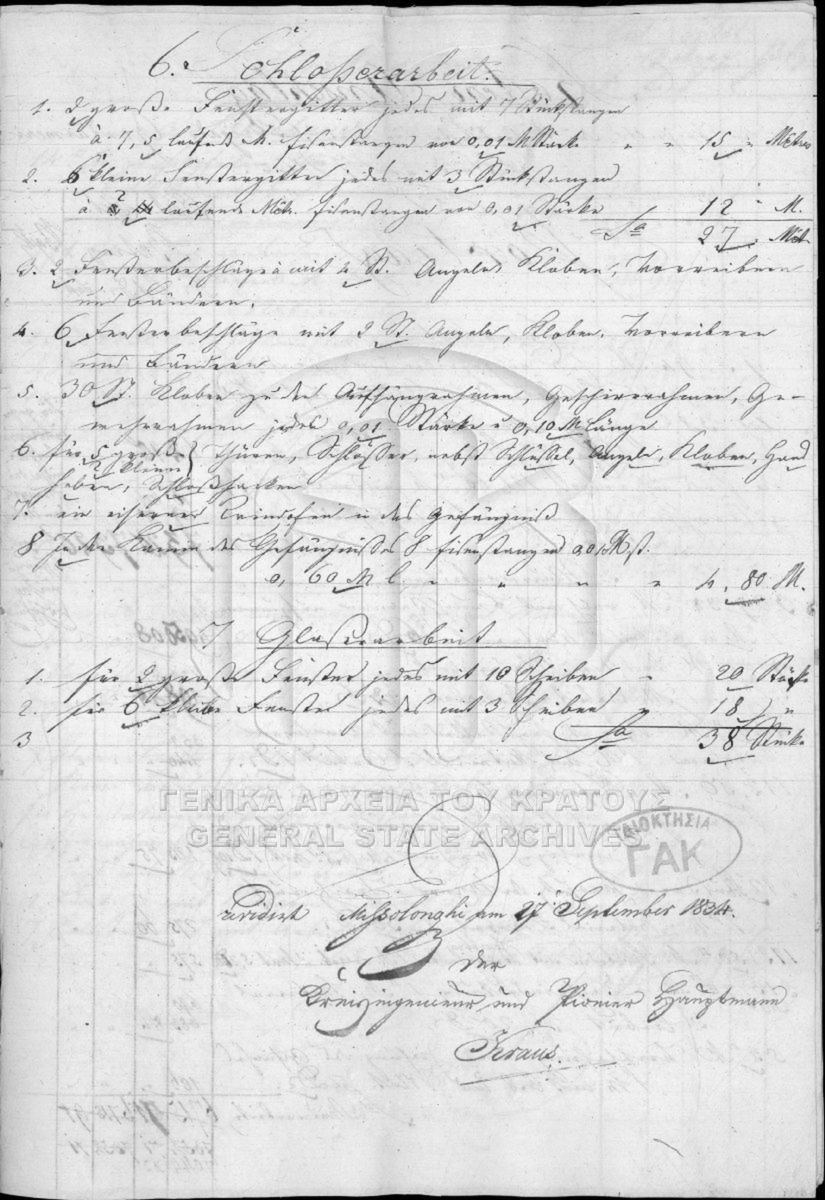 6. Schloßerarbeit.
1. 2 große Fenstergitter jedes mit 7 Stückstangen
à 7,5 laufende M. Eisenstangen von 0,01 M Stärke " " 15 " Mètres
2. 6 kleine Fenstergitter jedes mit 3 Stückstangen
à 2 laufende Mètr. Eisenstangen von 0,01 Stärke 12 " M.
Sa 27 " Mèt.
3. 2 Fensterbeschläge mit 4 St. Angeln, Kloben, Vorreibern
und Bändern.
4. 6 Fensterbeschläge mit 2 St. Angeln, Kloben, Vorreibern
und Bändern
5. 30 St. Kloben zu den Aufhängrahmen, Geschirrrahmen, Ge-
wehrrahmen jedes 0,01 Stärke u 0,10 M Länge
6. für 5 große Thüren, Schlösser, nebst Schlüssel, Angeln, Kloben, Hand
kleine
haben, Schloßhacken
7. ein eiserner in das Gefängniß
8 In den Kamin des Gefängnisses 8 Eisenstangen 0,01 M st.
0,60 M l. " " " " 4,80 M.
7 Glaserarbeit
1. für 2 große Fenster jedes mit 10 Scheiben " 20 Stücke
2. für 6 kleine Fenster jedes mit 3 Scheiben " 18 " "
3 Sa 38 Stücke
ΓΕΝΙΚΑ ΑΡΧΕΙΑ ΤΟΥ ΚΡΑΤΟΥΣ
GENERAL STATE ARCHIVES
ΙΔΙΟΚΤΗΣΙΑ
ΓΑΚ
revidirt Missolonghi am 27 September 1834.
Der
Kreisingenieur und Pionier Hauptmann
Kraus.